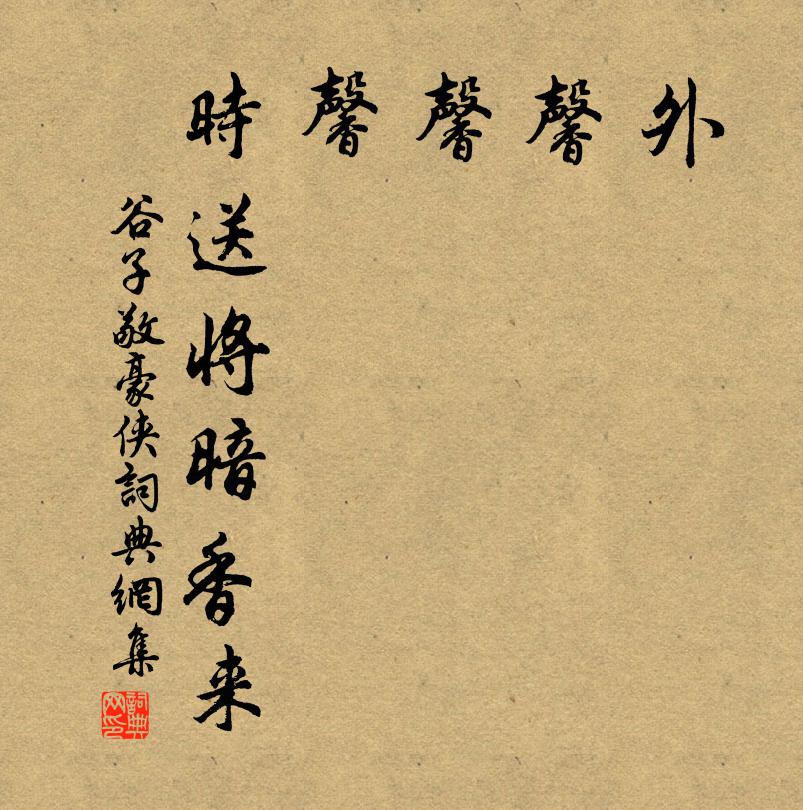 外
馨
馨
馨
時送將暗香来
谷子敬豪侠詞典網集
詞典
网印